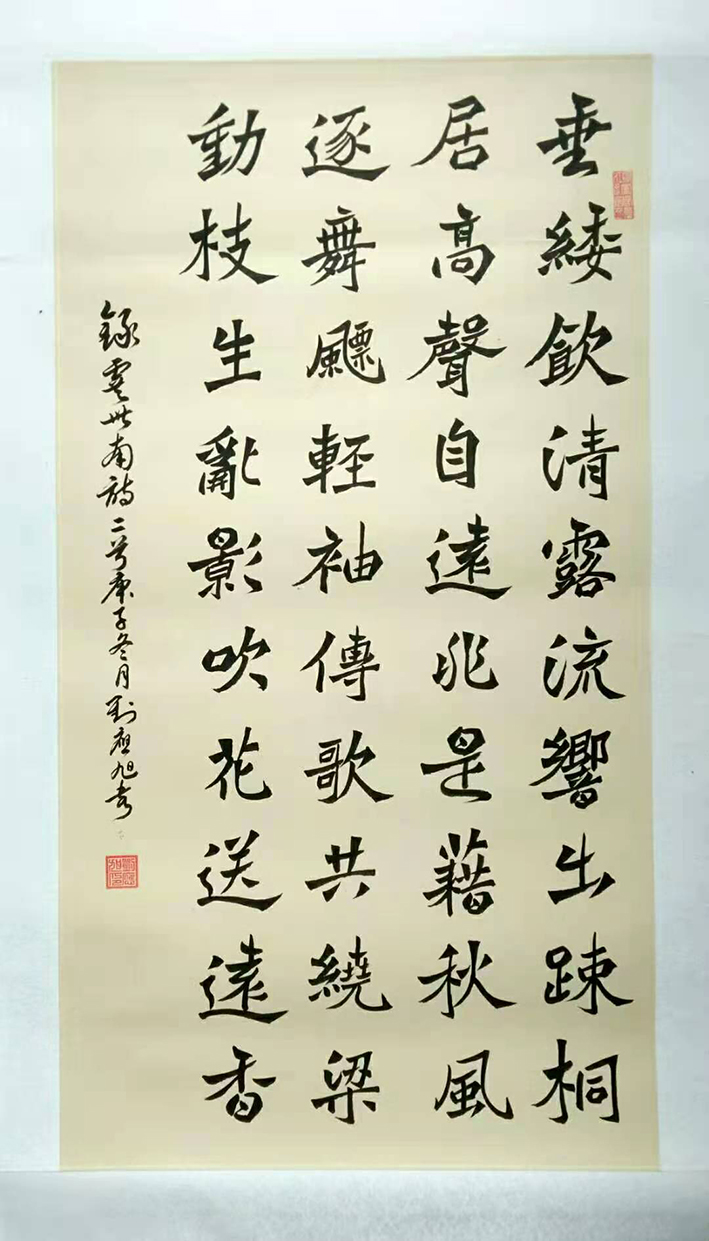 垂緌飲清露流響出踈桐
居高聲自遠非是藉秋風
逐舞飄輕袖傳歌共繞梁
動枝生亂影吹花送遠香
錄虞世南詩二首庚子冬月劉應旭書